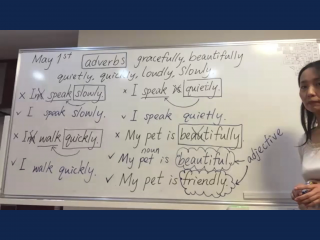 May 1st adverbs gracefully, beautifully
quietly, quickly, loudly, slowly
× I speak slowly.
✓ I speak slowly.
× I walk quickly.
✓ I walk quickly.
× I speak quietly.
✓ I speak quietly.
× My pet is beautifully
noun
✓ My pet is beautiful.
✓ My pet is friendly.
adjective